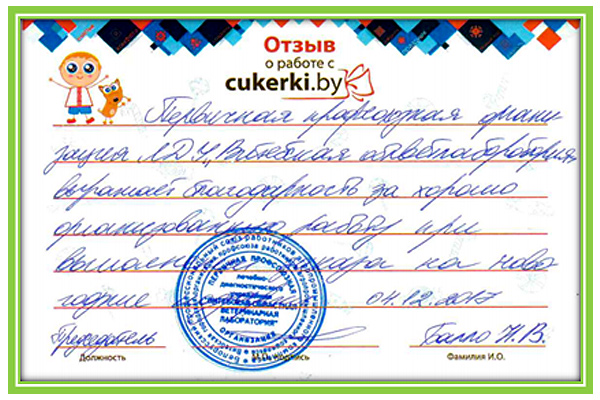 Отзыв
о работе с
cukerki.by
Первичная профсоюзная органи
зация ЛДУ „Витебская облветлаборатория„
выражает благодарность за хорошо
организованную работу при
на ново
годние 04.12.2017
ПЕРВИЧНАЯ ПРОФСОЮЗНАЯ
лечебно-
диагностического
учреждения
ВЕТЕРИНАРНАЯ
ЛАБОРАТОРИЯ"
ОРГАНИЗАЦИЯ
Председатель Балло Н.В.
Должность подпись Фамилия И.О.